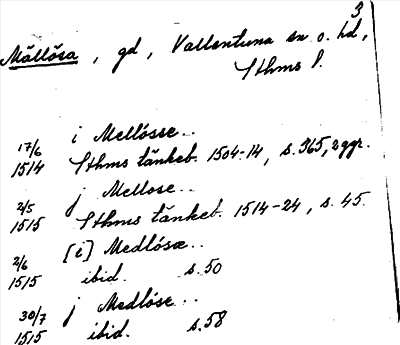 3
Mällösa, gd, Vallentuna sn o. hd,
Sthms l.
17/6 i Mellösse..
1514 Sthms tänkeb. 1504-14, s. 365, 2 ggr.
2/5 j Mellose..
1515 Sthms tänkeb. 1514-24, s. 45.
2/6 [i] Medlösæ..
1515 ibid. s. 50
30/7 j Medlöse...
1515 ibid. s. 58